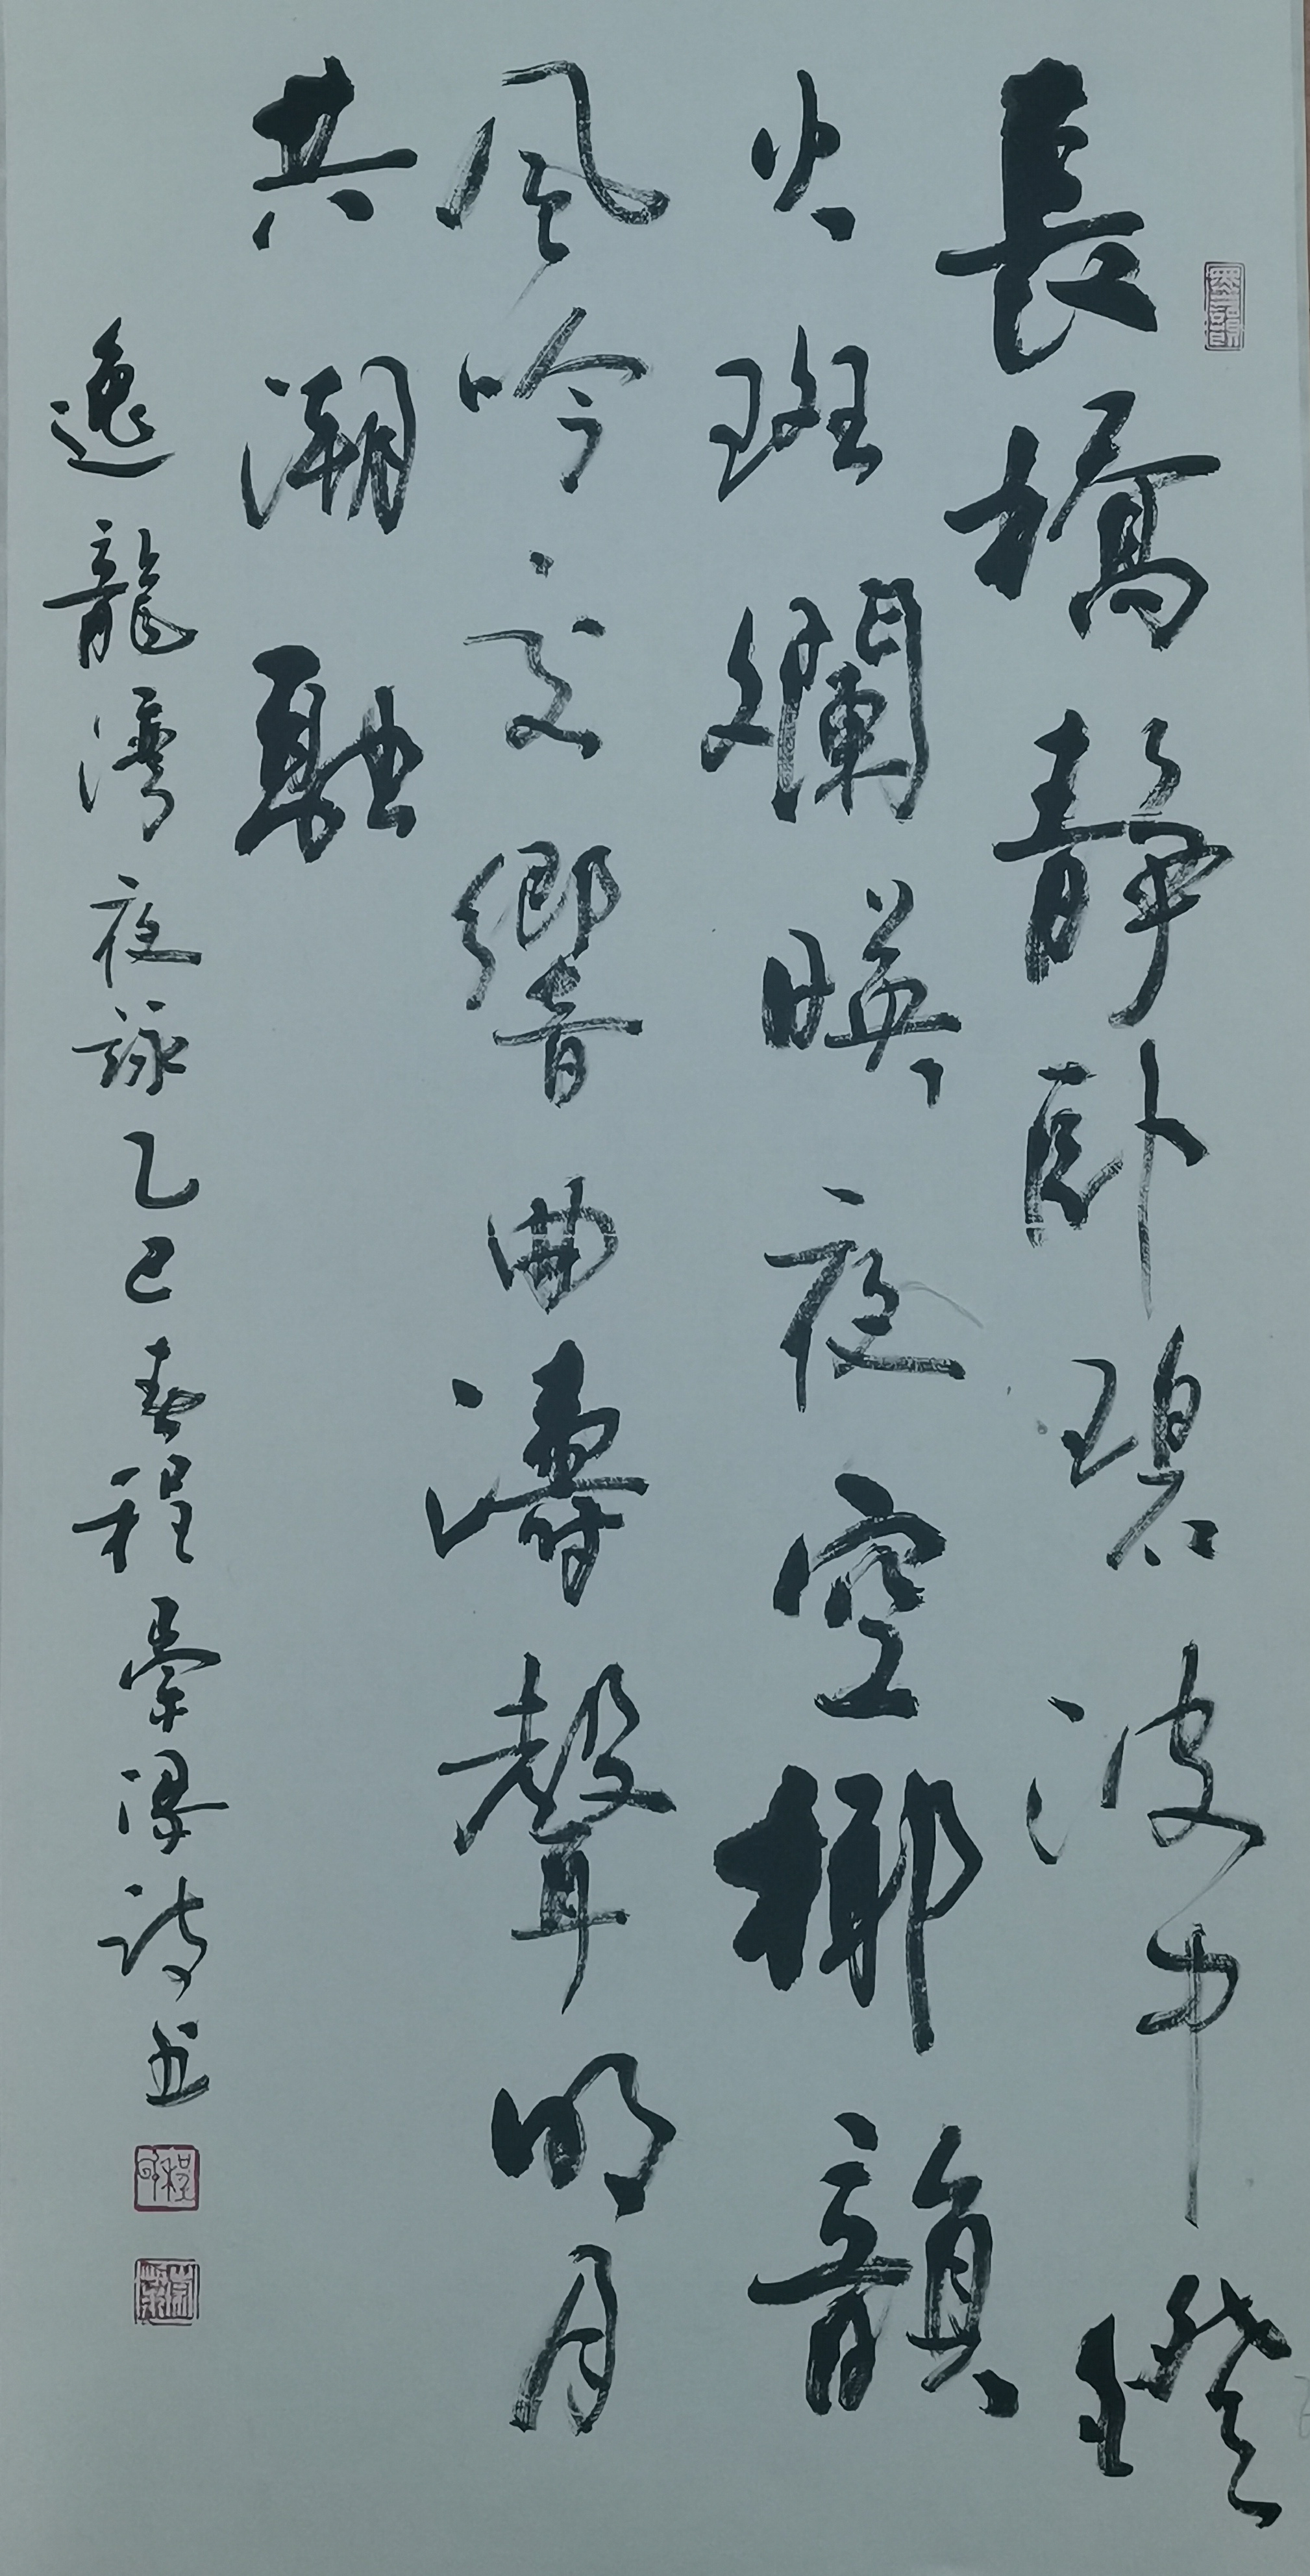 長橋靜卧碧波中燈
火斑斕暎夜空椰韻
風吟交響曲濤聲明月
共潮融
逸龍灣夜詠乙巳春程崇梁詩書